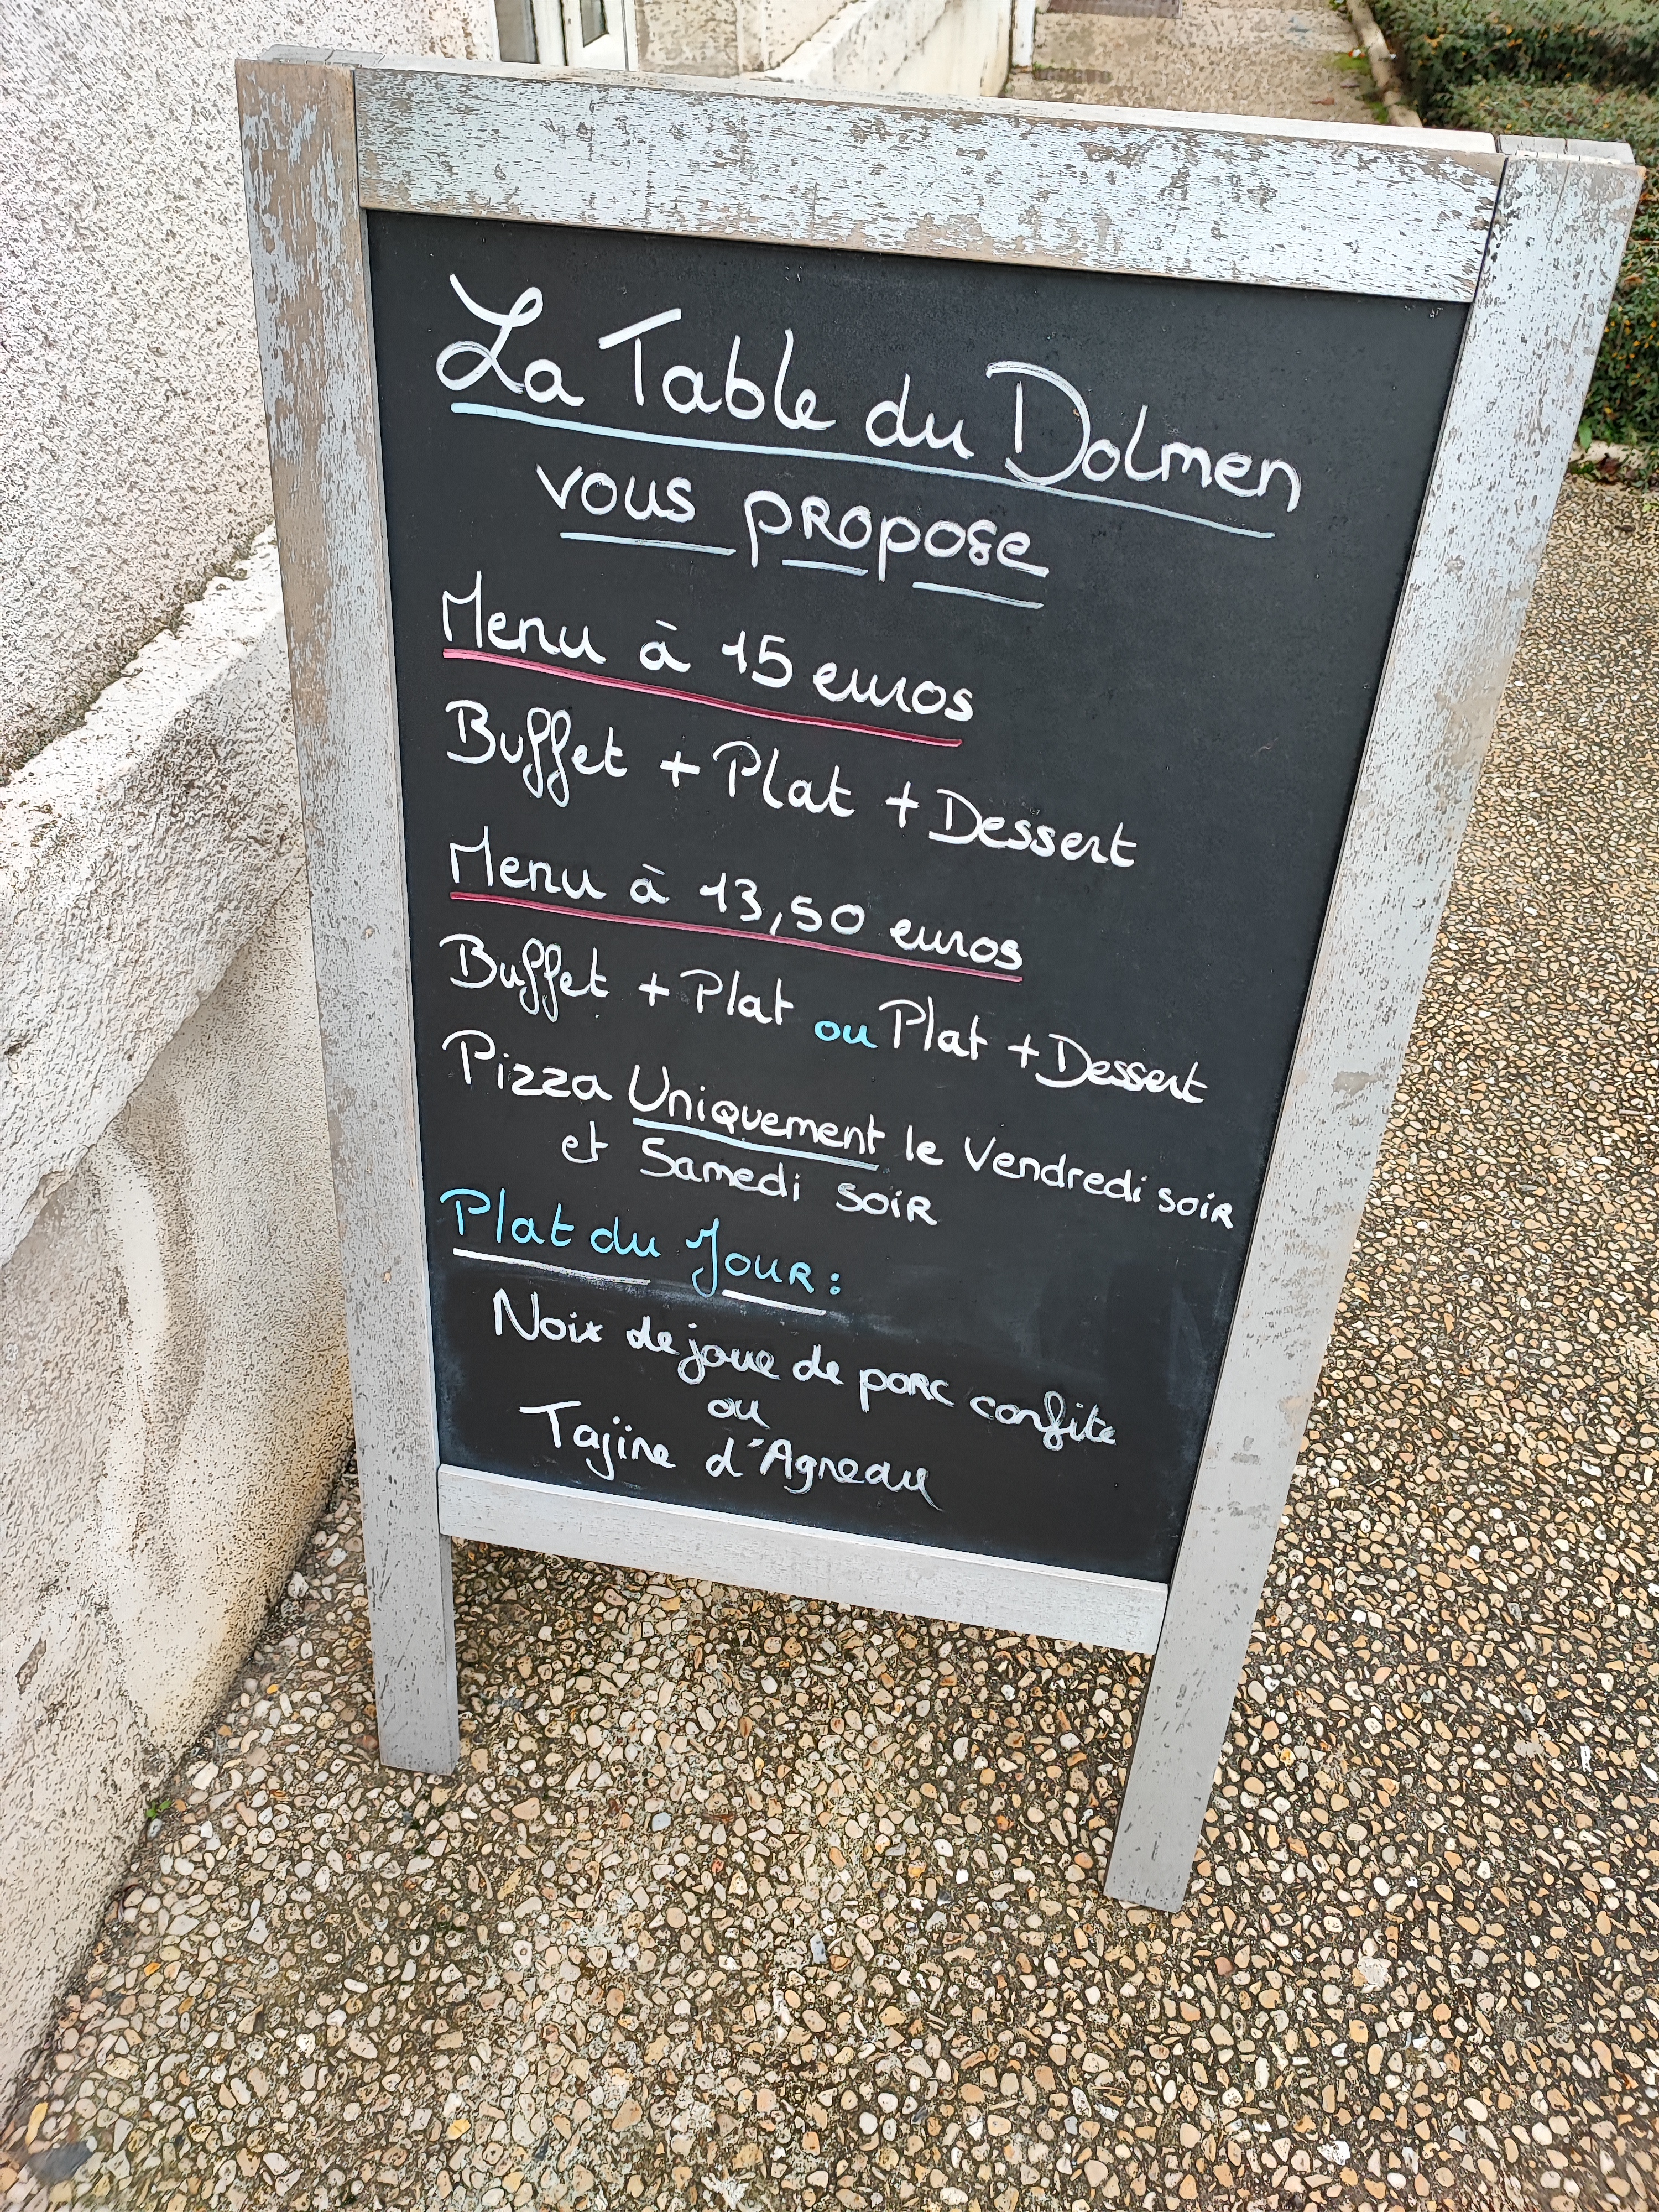 La Table du Dolmen
vous propose
Menu à 15 euros
Buffet + Plat + Dessert
Menu à 13,50 euros
Buffet + Plat ou Plat + Dessert
Pizza Uniquement le Vendredi soir
et Samedi soir
Plat du Jour :
Noix de joue de porc confite
ou
Tajine d'Agneau